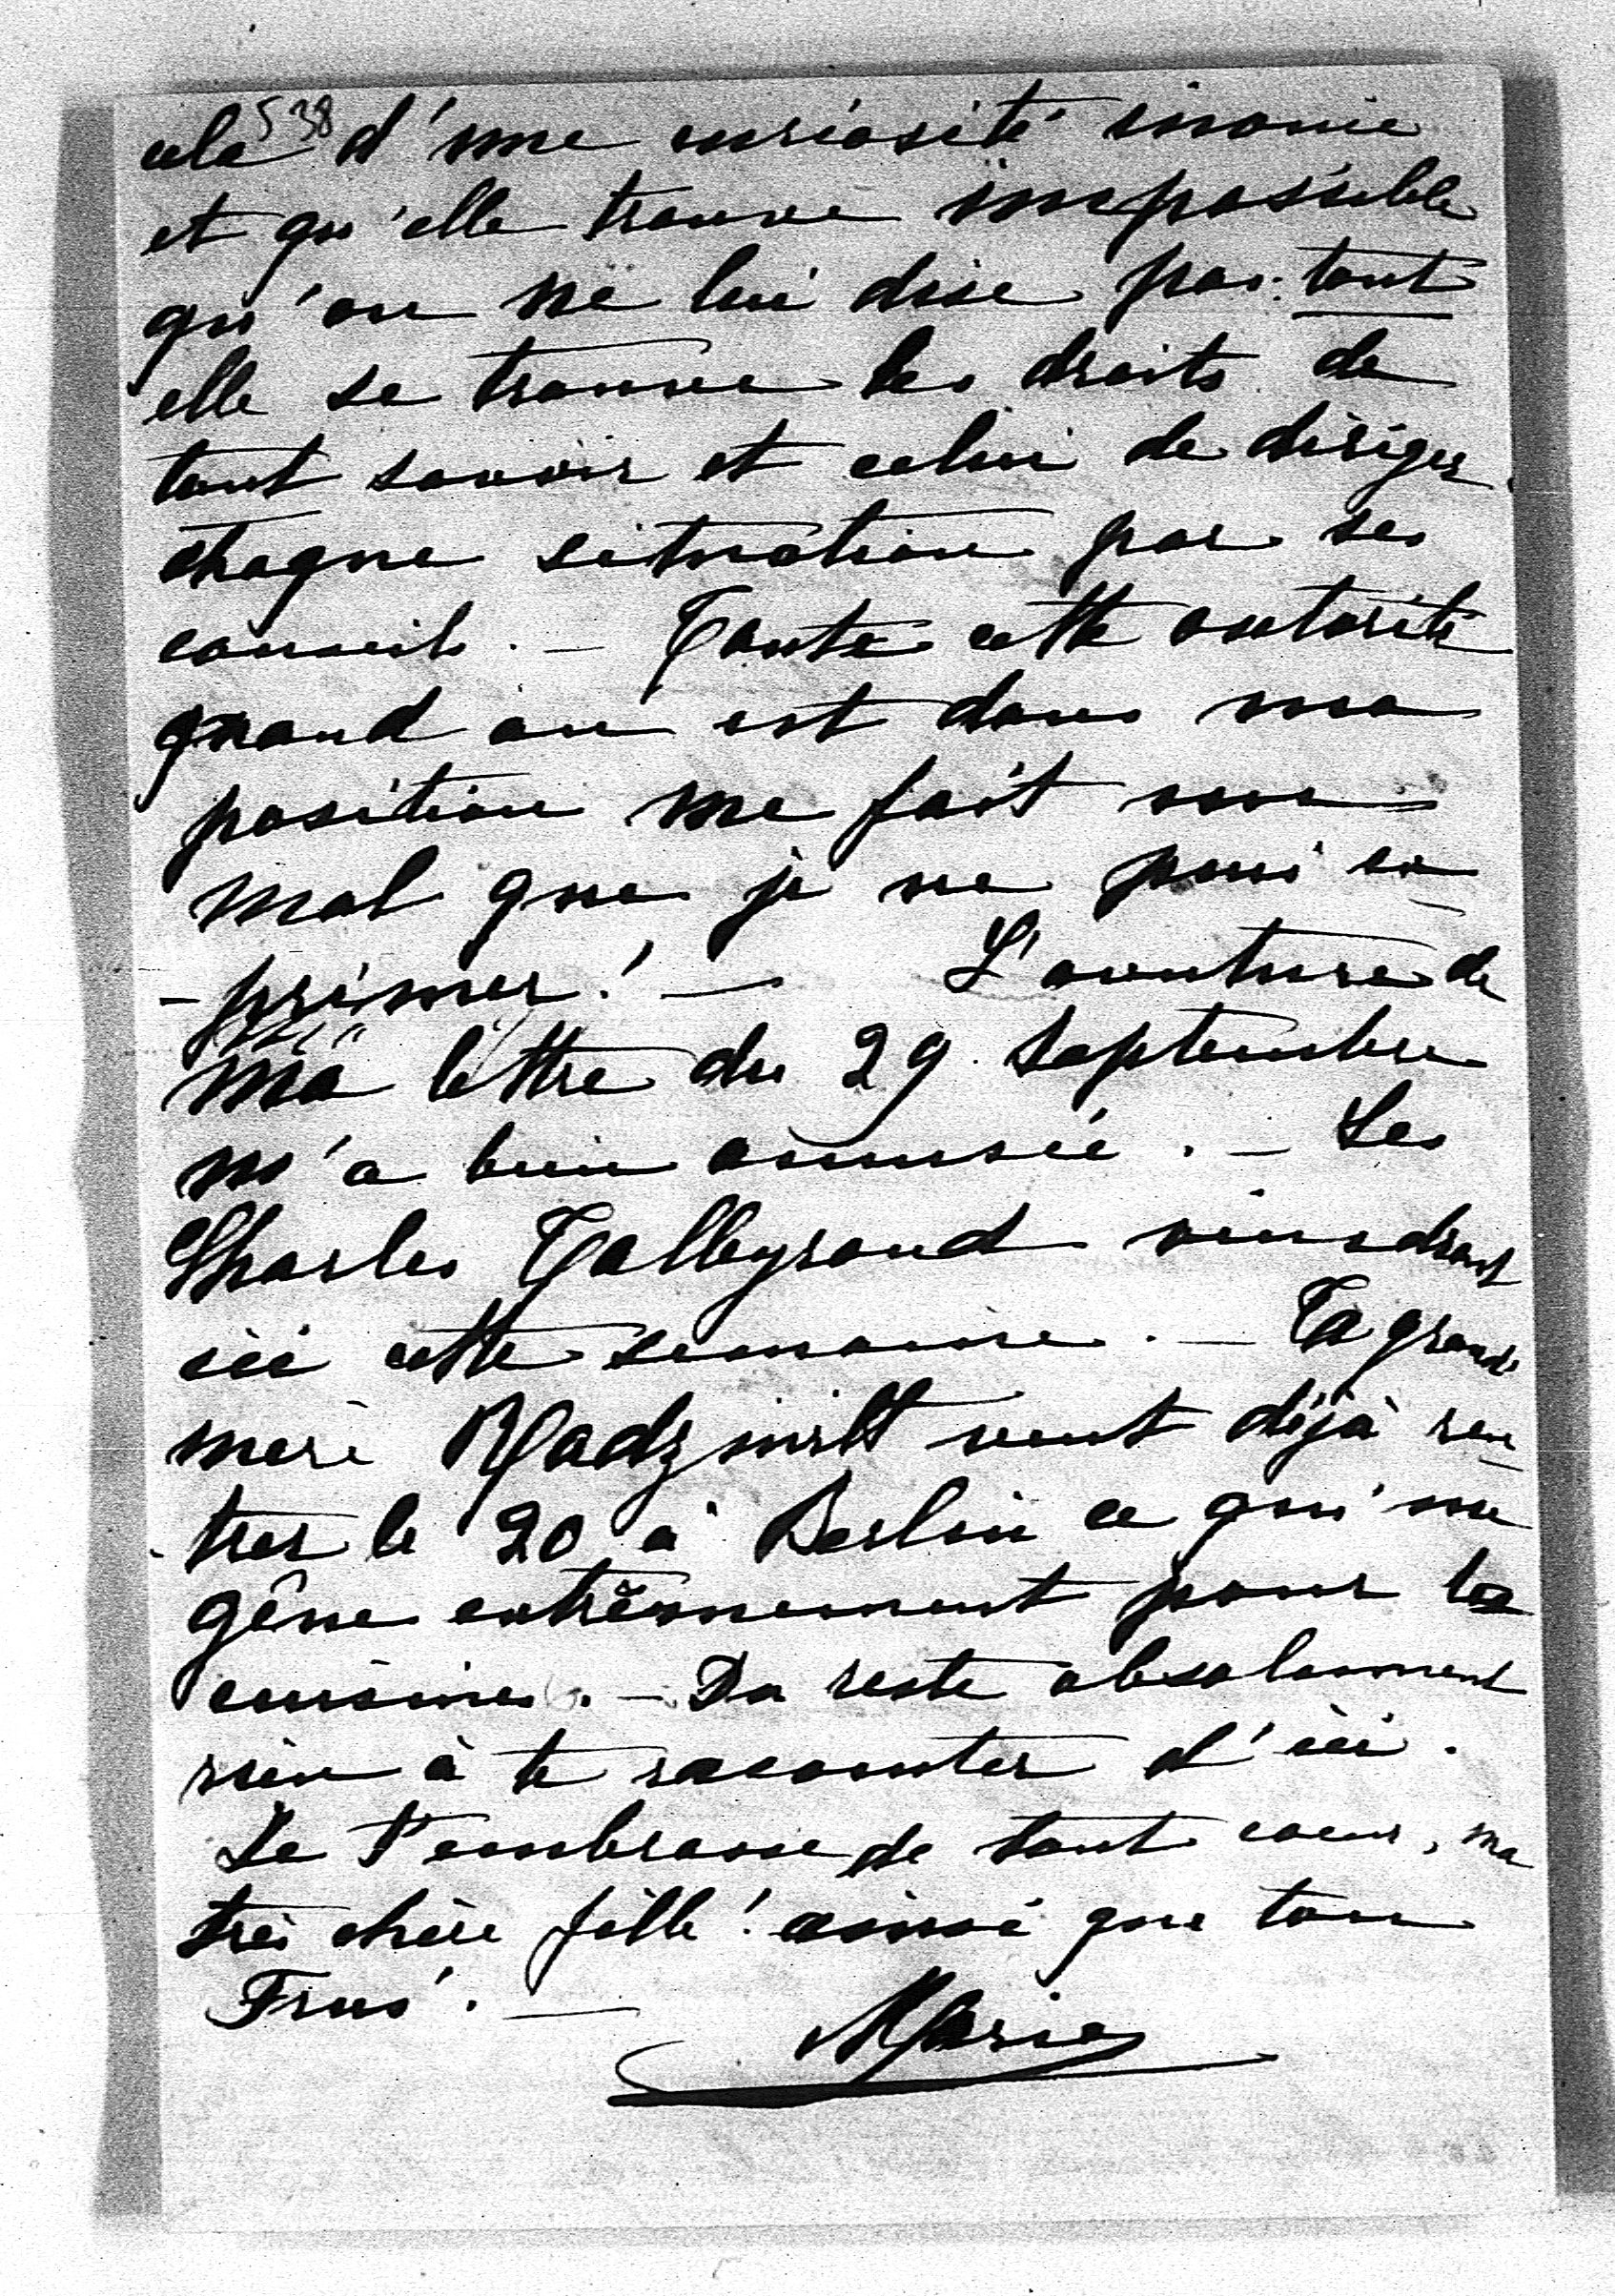 538
cela d'une curiosité inouïe
et qu'elle trouve impossible
qu'on ne lui dise pas tout
elle se trouve les droits de
tout savoir et celui de diriger
chaque situation par ses
conseils. — Toute cette autorité
quand on est dans ma
position me fait un
mal que je ne puis ex-
-primer! — L'aventure de
ma lettre du 29 Septembre
m'a bien amusée. — Les
Charles Talleyrand viendront
ici cette semaine. — Ta grand
mère Radziwill veut déjà ren-
-trer le 20 à Berlin ce qui me
gêne extrêmement pour la
cuisine. — Du reste absolument
rien à te raconter d'ici.
Je t'embrasse de tout coeur, ma
très chère fille! ainsi que ton
Marie